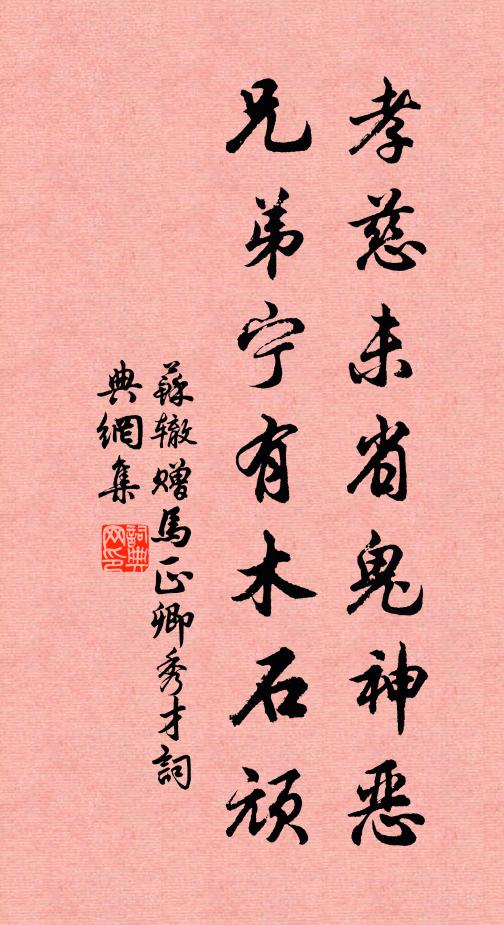 孝慈未省鬼神恶
兄弟宁有木石顽
蘇辙赠馬正卿秀才詞
典網集
詞典
网印